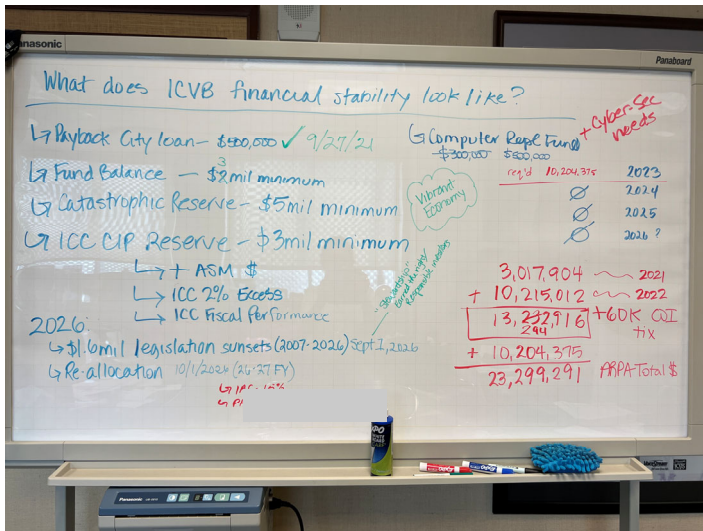 Panasonic
Panaboard
What does ICVB financial stability look like?
↳ Payback City loan - $500,000 ✓ 9/27/21
↳ Fund Balance - $2 3 mil minimum
↳ Catastrophic Reserve - $5mil minimum
↳ ICC CIP Reserve - $3mil minimum
↳ + ASM $
↳ ICC 2% Excess
↳ ICC Fiscal Performance
2026:
↳ $1.6mil legislation sunsets (2007-2026) Sept 1, 2026
↳ Re-allocation 10/1/2026 (26-27 FY)
Vibrant
Economy
"Stewardship"
Earned the right/
Responsible investors
↳ Computer Repl Fund
+ Cyber-Sec
needs
$300,000 $500,000
req'd 10,204,375 2023
∅ 2024
∅ 2025
∅ 2026?
3,017,904 2021
+ 10,215,012 2022
13,232,916 +60K COI
294 tix
+ 10,204,375
23,299,291 ARPA-Total $
EXPO
Panasonic